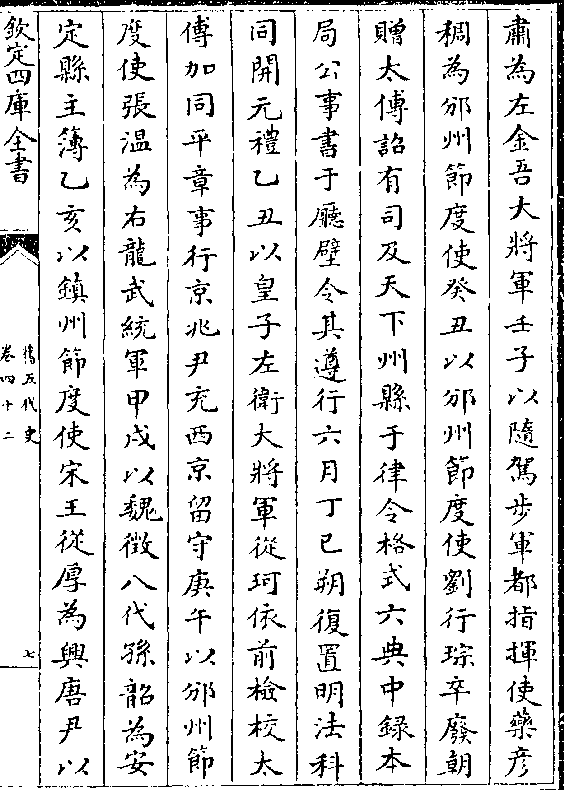 肅為左金吾大將軍壬子以隨駕步軍都指揮使藥彦
稠為邠州節度使癸丑以邠州節度使劉行琮卒廢朝
贈太傅詔有司及天下州縣于律令格式六典中録本
局公事書于廳壁令其遵行六月丁巳朔復置明法科
同開元禮乙丑以皇子左衛大將軍從珂依前檢校太
傅加同平章事行京兆尹充西京留守庚午以邠州節
度使張温為右龍武統軍甲戌以魏徵八代孫韶為安
定縣主簿乙亥以鎮州節度使宋王從厚為興唐尹以
欽定四庫全書
舊五代史
卷四十二
七